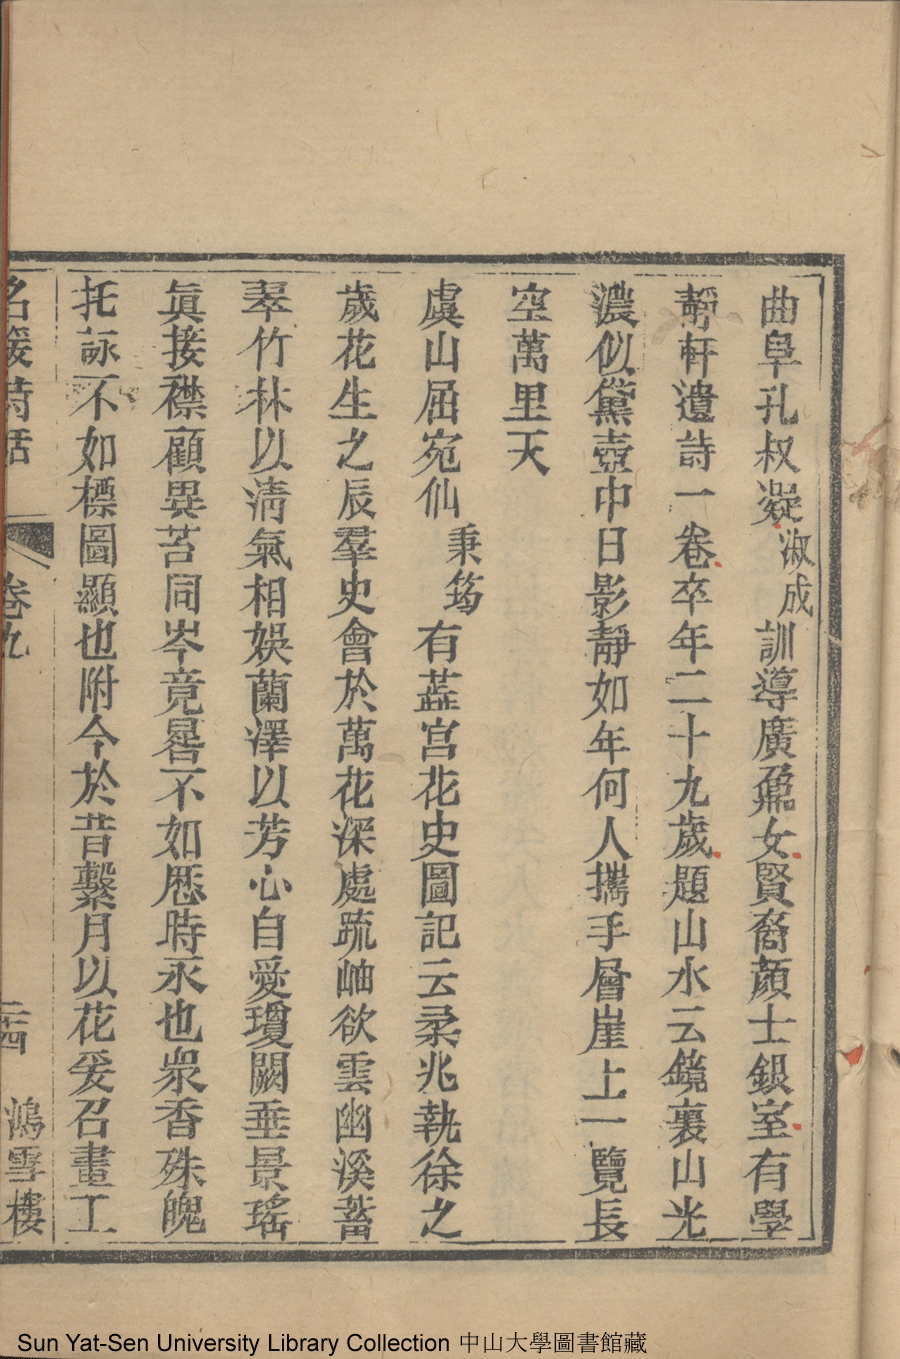 曲阜孔叔凝淑成訓導廣鼐女賢裔顏士銀室有學
靜軒遺詩一卷卒年二十九歲題山水云鏡裏山光
濃似黛壺中日影靜如年何人攜手層崖上一覽長
空萬里天
虞山屈宛仙秉筠有蕋宮花史圖記云柔兆執徐之
歲花生之辰羣史會於萬花深處疏岫欲雲幽溪蓄
翠竹林以清氣相娛蘭澤以芳心自愛瓊闕垂景瑤
眞接襟顧異苔同岑竟晷不如歷時永也衆香殊皅
托詠不如標圖顯也附今於昔繫月以花爰召畫工
名媛詩話 卷九 二十四 鴻雪樓
Sun Yat-Sen University Library Collection 中山大學圖書館藏